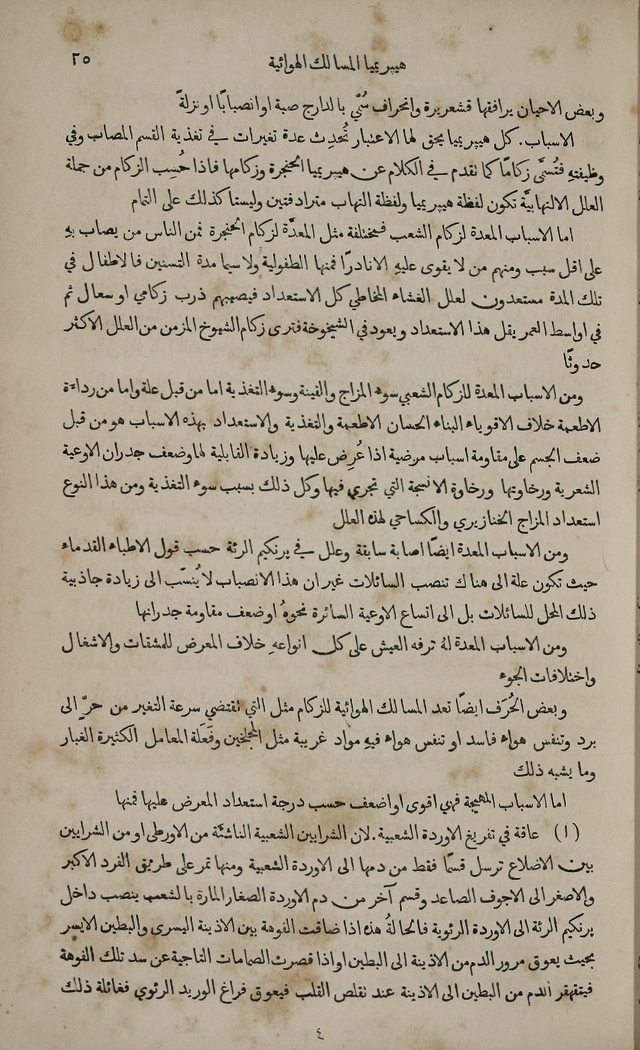 هيبريميا المسالك الهوائية ٢٥
وبعض الاحيان يرافقها قشعريرة وانحراف سُمّي بالدارج صبة او انصبابًا او نزلةً
الاسباب. كل هيبريميا يحق لما الاعتبار تُحدِث عدة تغيرات في تغذية القسم المصاب وفي
وظيفتهِ فتُسمَّى زكامًا كما تقدم في الكلام عن هيبريميا الحنجرة وزكامها فاذا حُسِب الزكام من جملة
العلل الالتهابيَّة تكون لفظة هيبريميا ولفظة التهاب مترادفتين وليستا كذلك على التمام
اما الاسباب المعدة لزكام الشعب فمختلفة مثل المعدَّة لزكام الحنجرة فمن الناس من يصاب بهِ
على اقل سبب ومنهم من لا يقوى عليهِ الا نادرًا فمنها الطفولية ولا سيما مدة التسنين فالاطفال في
تلك المدة مستعدون لعلل الغشاء المخاطي كل الاستعداد فيصيبهم ذرب زكامي او سعال ثم
في اواسط العمر يقل هذا الاستعداد ويعود في الشيخوخة فترى زكام الشيوخ المزمن من العلل الاكثر
حدوثًا
ومن الاسباب المعدة للزكام الشعبي سوء المزاج والقينة وسوء التغذية اما من قبل علة واما من رداءة
الاطعمة خلاف الاقوياء البناء الحسان الاطعمة والتغذية والاستعداد بهذه الاسباب هو من قبل
ضعف الجسم على مقاومة اسباب مرضية اذا عُرِض عليها وزيادة القابلية لما وضعف جدران الاوعية
الشعرية ورخاوتها ورخاوة الانسجة التي تجري فيها وكل ذلك بسبب سوء التغذية ومن هذا النوع
استعداد المزاج الخنازيري والكساحي لهذه العلل
ومن الاسباب المعدة ايضًا اصابة سابقة وعلل في برنكيم الرئة حسب قول الاطباء القدماء
حيث تكون علة الى هناك تنصب السائلات غير ان هذا الانصباب لا يُنسَب الى زيادة جاذبية
ذلك المحل للسائلات بل الى اتساع الاوعية السائرة نحوهُ او ضعف مقاومة جدرانها
ومن الاسباب المعدة لهُ ترفه العيش على كل انواعهِ خلاف المعرض للمشقات والاشغال
واختلافات الجوء
وبعض الحُرَف ايضًا تعد المسالك الهوائية للزكام مثل التي تقتضي سرعة التغير من حرٍّ الى
برد وتنفس هواء فاسد او تنفس هواء فيهِ مواد غريبة مثل المحلجين وفَعَلة المعامل الكثيرة الغبار
وما يشبه ذلك
اما الاسباب المهيجة فهي اقوى او اضعف حسب درجة استعداد المعرض عليها فمنها
(١) عاقة في تفريغ الاوردة الشعبية. لان الشرايين الشعبية الناشئة من الاورطى او من الشرايين
بين الاضلاع ترسل قسمًا فقط من دمها الى الاوردة الشعبية ومنها تمر على طريق الفرد الاكبر
والاصغر الى الاجوف الصاعد وقسم آخر من دم الاوردة الصغار المارة بالشعب ينصب داخل
برنكيم الرئة الى الاوردة الرئوية فالحالة هذه اذا ضاقت الفوهة بين الاذينة اليسرى والبطين الايسر
بحيث يعوق مرور الدم من الاذينة الى البطين او اذا قصرت الصمامات التاجية عن سد تلك الفوهة
فيتقهقر الدم من البطين الى الاذينة عند تقلص القلب فيعوق فراغ الوريد الرئوي فغائلة ذلك
٤